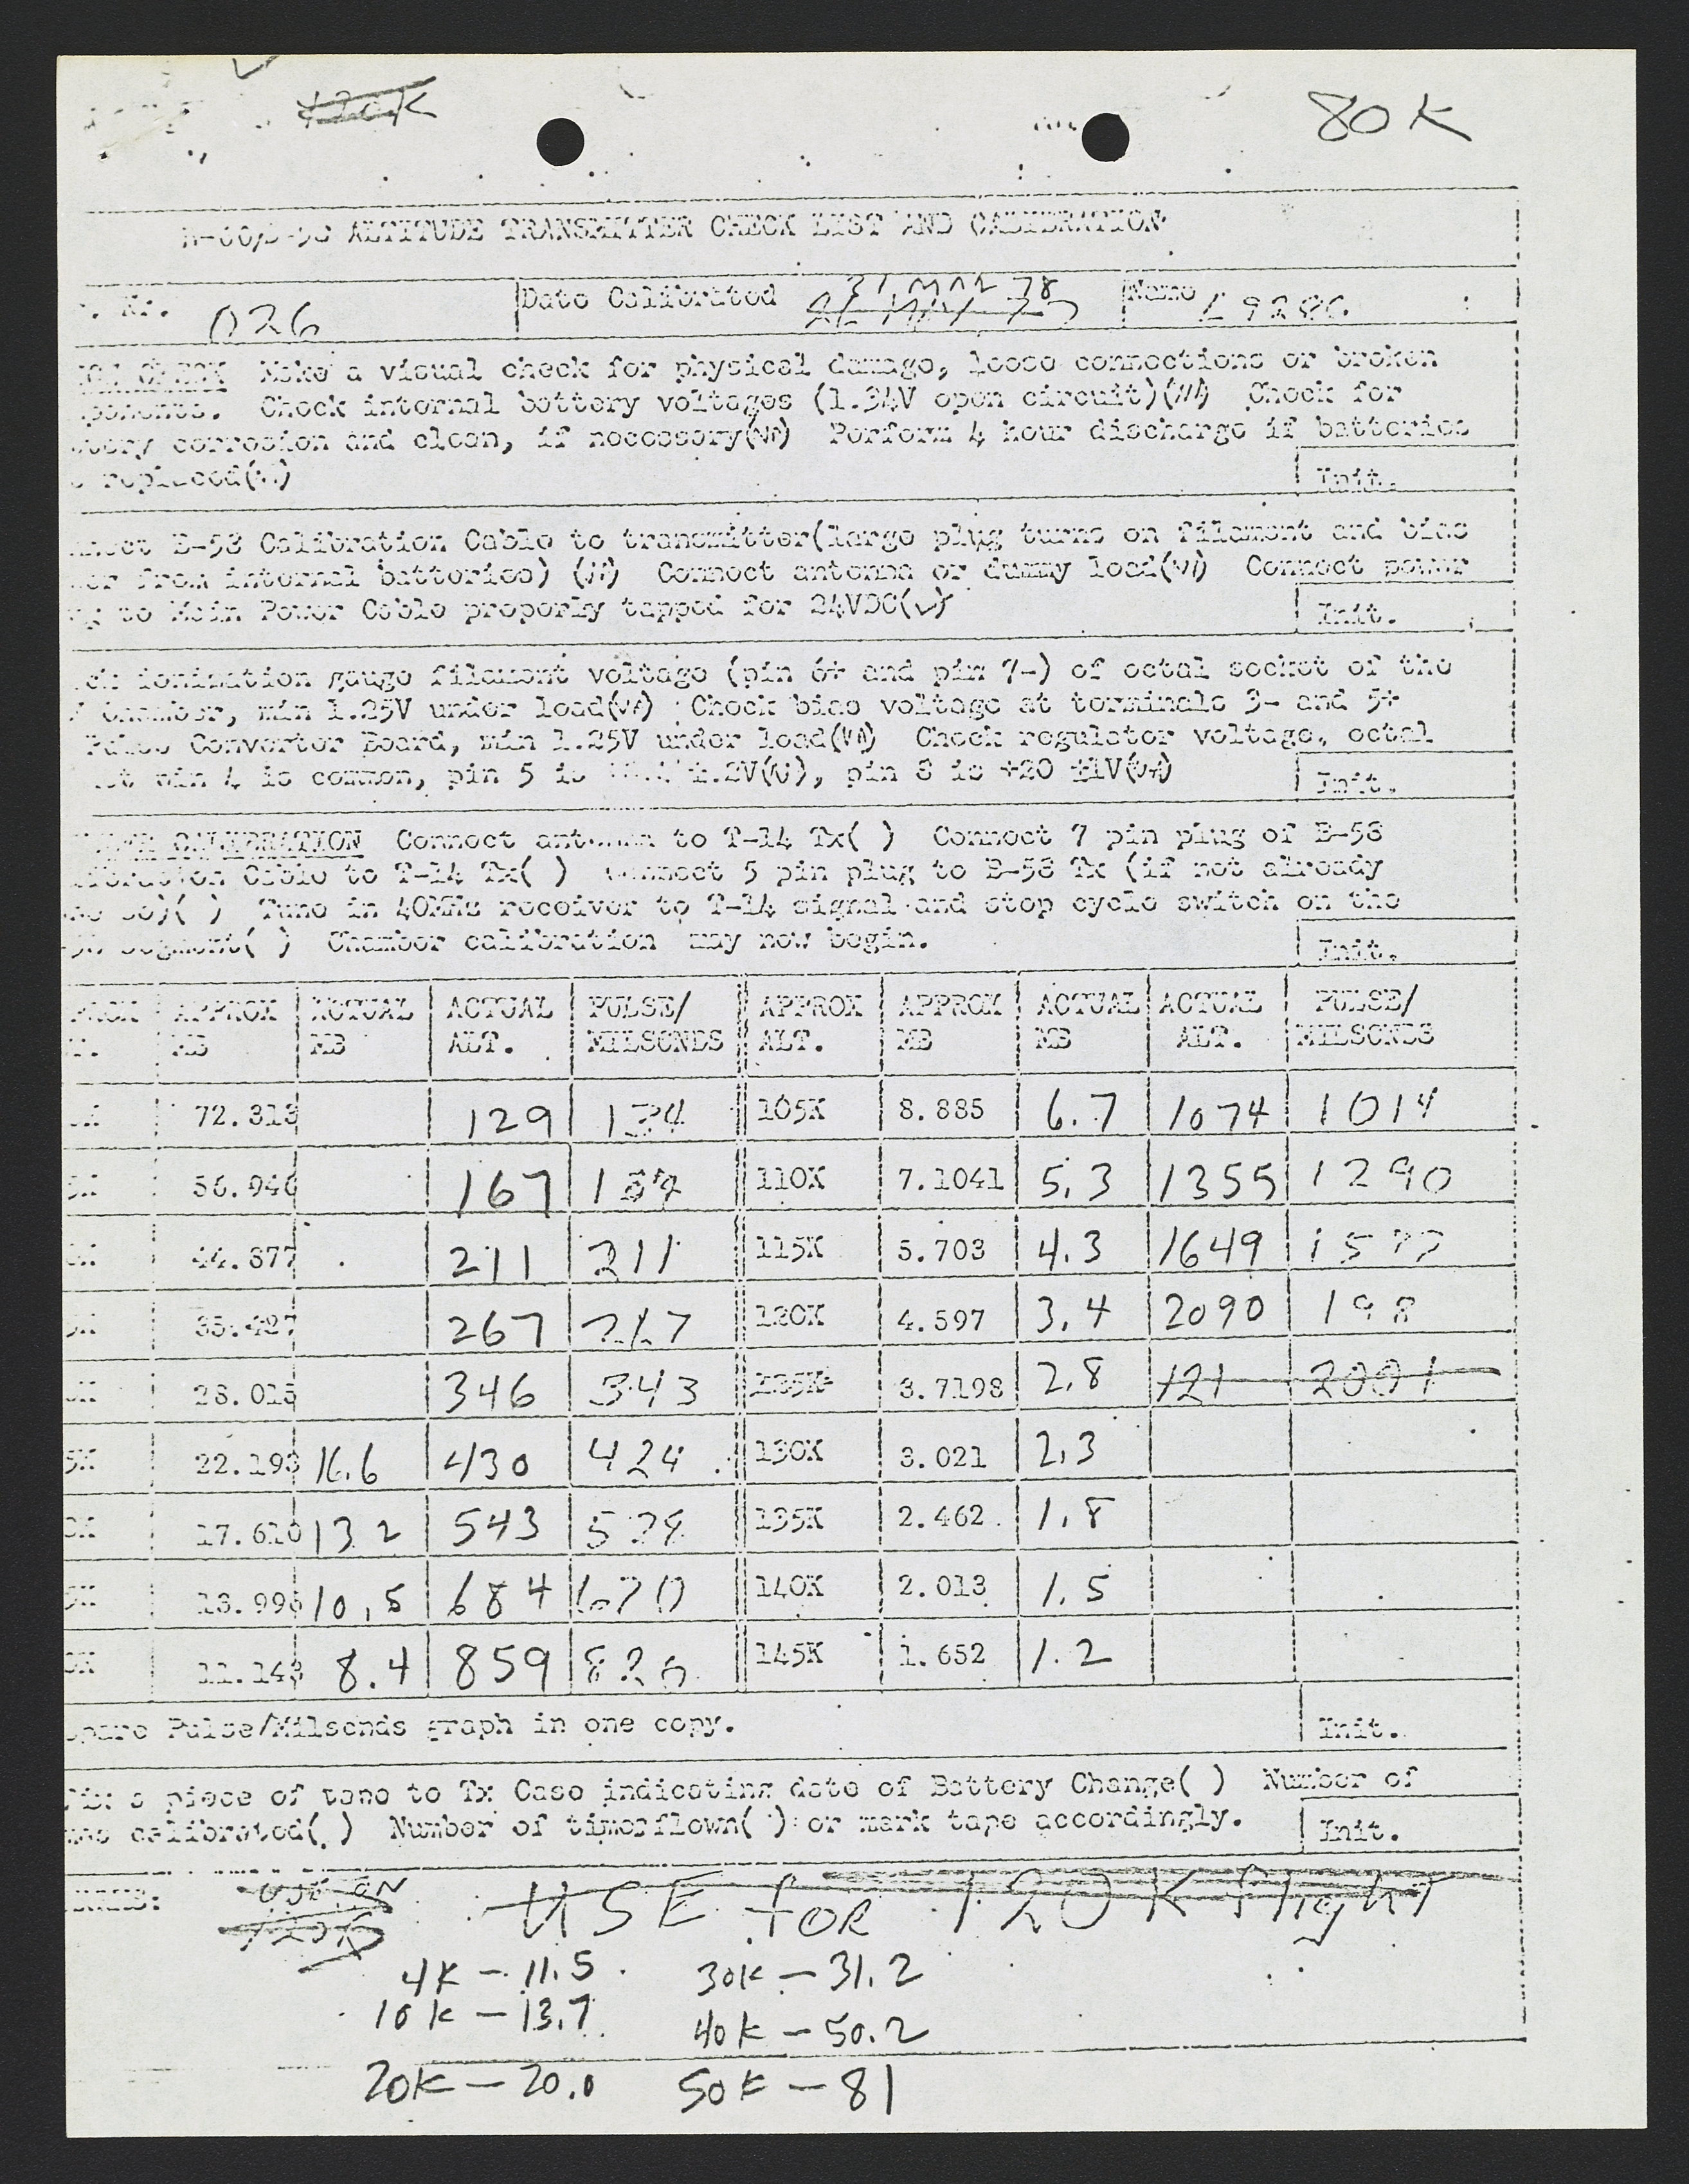 80 K
ALTITUDE TRANSMITTER CHECK LIST AND CALIBRATION
026 Date Calibrated 31 MAR 78 Name
Make a visual check for physical damage, loose connections or broken
Check internal battery voltages (1.34V open circuit) Check for
corrosion and clean, if necessary Perform 4 hour discharge if batteries
replaced Init.
B-58 Calibration Cable to transmitter(large plug turns on filament and bias
from internal batteries) Connect antenna or dummy load Connect power
to Main Power Cable properly tapped for 24VDC(✓) Init.
ionization gauge filament voltage (pin 6+ and pin 7-) of octal socket of the
chamber, min 1.25V under load Check bias voltage at terminals 3- and 5+
Pulse Convertor Board, min 1.25V under load Check regulator voltage, octal
pin 4 is common, pin 5 is pin 8 is +20 ±1V Init.
CALIBRATION Connect antenna to T-14 Tx( ) Connect 7 pin plug of B-58
Cable to T-14 Tx( ) Connect 5 pin plug to B-58 Tx (if not already
so)( ) Tune in 40MHz receiver to T-14 signal and stop cycle switch on the
segment( ) Chamber calibration may now begin. Init.
APPROX ACTUAL ACTUAL PULSE/ APPROX APPROX ACTUAL ACTUAL PULSE/
MB MB ALT. MILSCNDS ALT. MB MB ALT. MILSCNDS
72.313 129 134 105K 8.885 6.7 1074 1014
56.946 167 110K 7.1041 5.3 1355 1290
44.877 211 211 115K 5.703 4.3 1649
35.427 267 120K 4.597 3.4 2090 198
28.015 346 343 3.7198 2.8 121 2001
22.193 16.6 430 424 130K 3.021 2.3
17.610 13 2 543 135K 2.462 1.8
13.996 10.5 684 670 140K 2.013 1.5
11.143 8.4 859 820 145K 1.652 1.2
Pulse/Milscnds graph in one copy. Init.
a piece of tape to Tx Case indicating date of Battery Change( ) Number of
calibrated( ) Number of timerflown( ) or mark tape accordingly. Init.
USE ON USE for 120K flight
120K
4K - 11.5 30K - 31.2
10K - 13.7 40K - 50.2
20K - 20.0 50K - 81